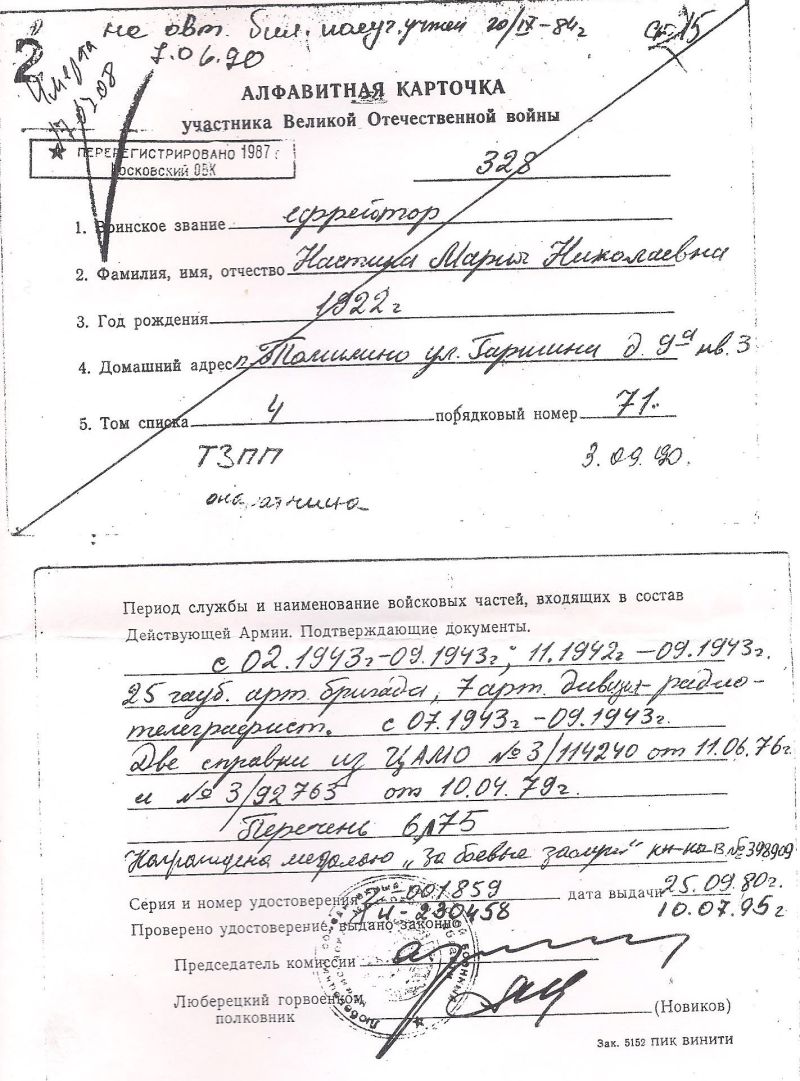 не авт. бил. получ. учтен 20/IX-84г
7.06.90
Умерла
2
АЛФАВИТНАЯ КАРТОЧКА
участника Великой Отечественной войны
ПЕРЕРЕГИСТРИРОВАНО 1987 г
328
1. Воинское звание ефрейтор
2. Фамилия, имя, отчество Настина Мария Николаевна
3. Год рождения 1922 г
4. Домашний адрес п. Томилино ул. Гаршина д. 9а кв. 3
5. Том списка 4 порядковый номер 71.
ТЗПП 3.09.90.
Период службы и наименование войсковых частей, входящих в состав
Действующей Армии. Подтверждающие документы.
с 02.1943г-09.1943г; 11.1942г-09.1943г.
25 гауб. арт. бригада, 7 арт. дивизия радио-
телеграфист. с 07.1943г-09.1943г.
Две справки из ЦАМО № 3/114240 от 11.06.76г
и № 3/92763 от 10.04.79г.
Перечень 6
Награждена медалью „За боевые заслуги" № 398909
Серия и номер удостоверения 001859 дата выдачи 25.09.80г.
230458 10.07.95г
Проверено удостоверение, выдано законно
Председатель комиссии
Люберецкий горвоенком
полковник (Новиков)
Зак. 5152 ПИК ВИНИТИ